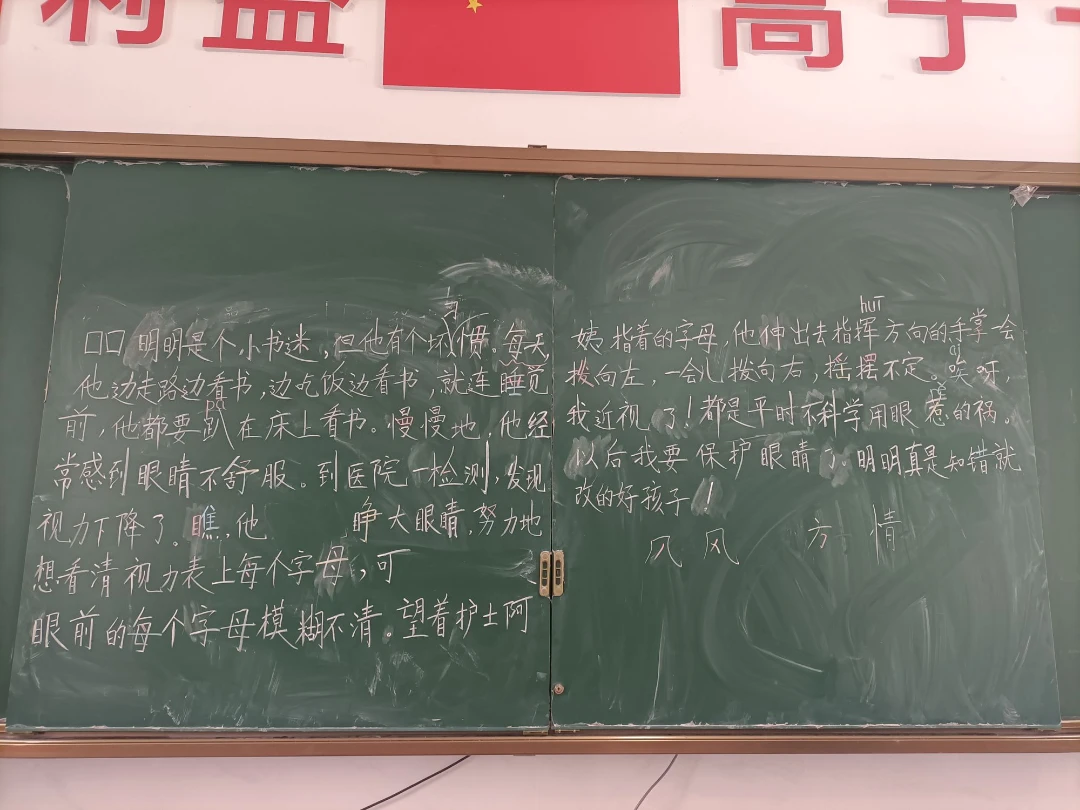 利益 高于一
口口 明明是个小书迷，但他有个坏习惯。每天
他边走路边看书，边吃饭边看书，就连睡觉
pā
前，他都要趴在床上看书。慢慢地，他经
常感到眼睛不舒服。到医院一检测，发现
视力下降了。瞧，他 睁大眼睛，努力地
想看清视力表上每个字母，可
眼前的每个字母模糊不清。望着护士阿
huī
姨指着的字母，他伸出去指挥方向的手掌一会
拨向左，一会儿拨向右，摇摆不定。唉呀，
我近视了！都是平时不科学用眼惹的祸。
以后我要保护眼睛了。明明真是知错就
改的好孩子！
风 方 情